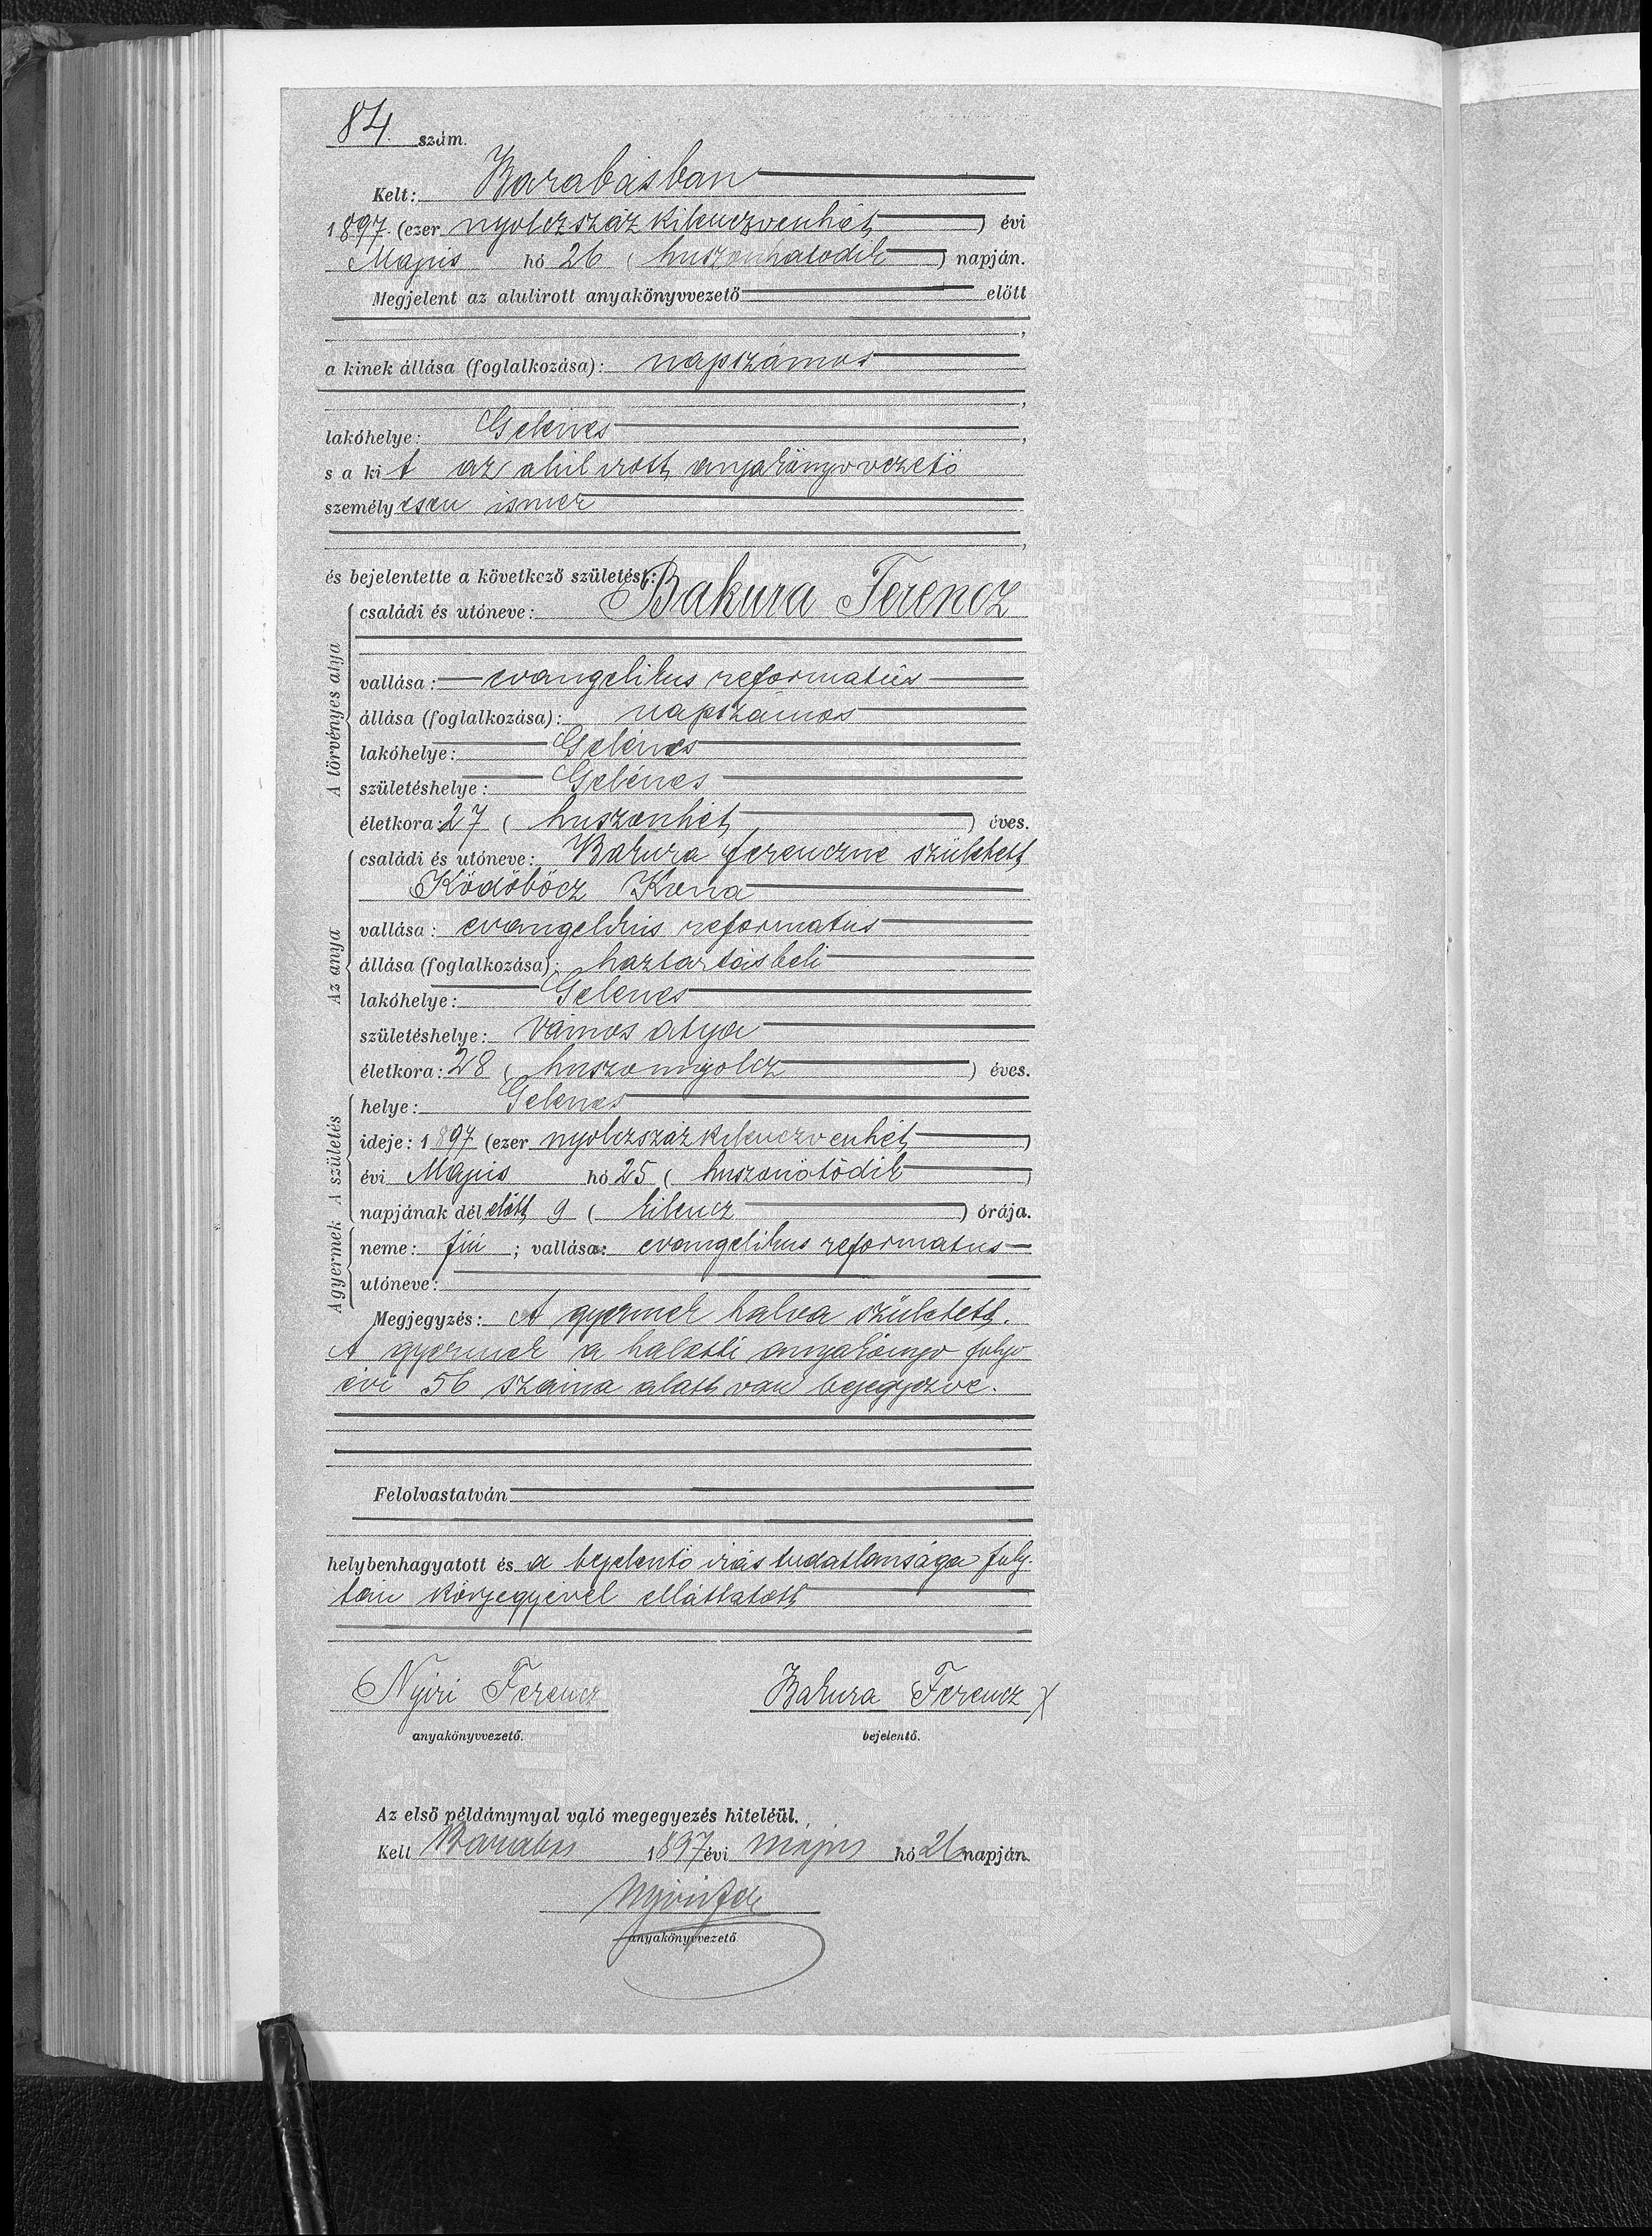 84. szám.
Kelt: Barabásban
1897. (ezer nyolczszáz kilenczvenhét) évi
Május hó 26 (huszonhatodik) napján.
Megjelent az alulirott anyakönyvvezető előtt
a kinek állása (foglalkozása): napszámos
lakóhelye: Gelénes
s a kit az alul irott anyakönyvvezető
személyesen ismer
és bejelentette a következő születést:
A törvényes atya
családi és utóneve: Bakura Ferencz
vallása: evangelikus reformatús
állása (foglalkozása): napszámos
lakóhelye: Gelénes
születéshelye: Gelénes
életkora: 27 (huszonhét) éves.
Az anya
családi és utóneve: Bakura Ferenczné született
Ködöböcz
vallása: evangelikus reformatus
állása (foglalkozása): haztartásbeli
lakóhelye: Gelenes
születéshelye: Vámos atya
életkora: 28 (huszonnyolcz) éves.
A születés
helye: Gelenes
ideje: 1897 (ezer nyolczszáz kilenczvenhét)
évi Május hó 25 (huszonötödik)
napjának dél előtt 9 (kilencz) órája.
A gyermek
neme: fiú; vallása: evangelikus reformatus
utóneve:
Megjegyzés: A gyermek halva született.
A gyermek a halotti anyakönyv folyo
évi 56 száma alatt van bejegyezve.
Felolvastatván
helybenhagyatott és a bejelentő irástudatlansága foly-
tán kézjegyével elláttatott
Nyiri Ferencz Bakura Ferencz x
anyakönyvvezető. bejelentő.
Az első példánynyal való megegyezés hiteléül.
Kelt Barabás 1897 évi május hó 26 napján.
anyakönyvvezető